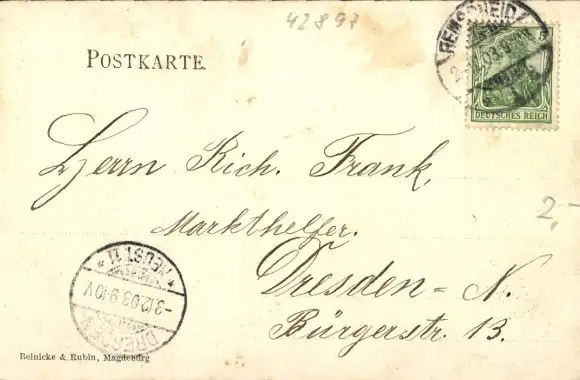 42897
REMSCHEID
POSTKARTE.
5
DEUTSCHES REICH
Herrn Rich. Frank,
Markthelfer.
2,-
Dresden - N.
Bürgerstr. 13.
NEUST. 11
-3.12.03.9-10V
DRESDEN
Reinicke & Rubin, Magdeburg